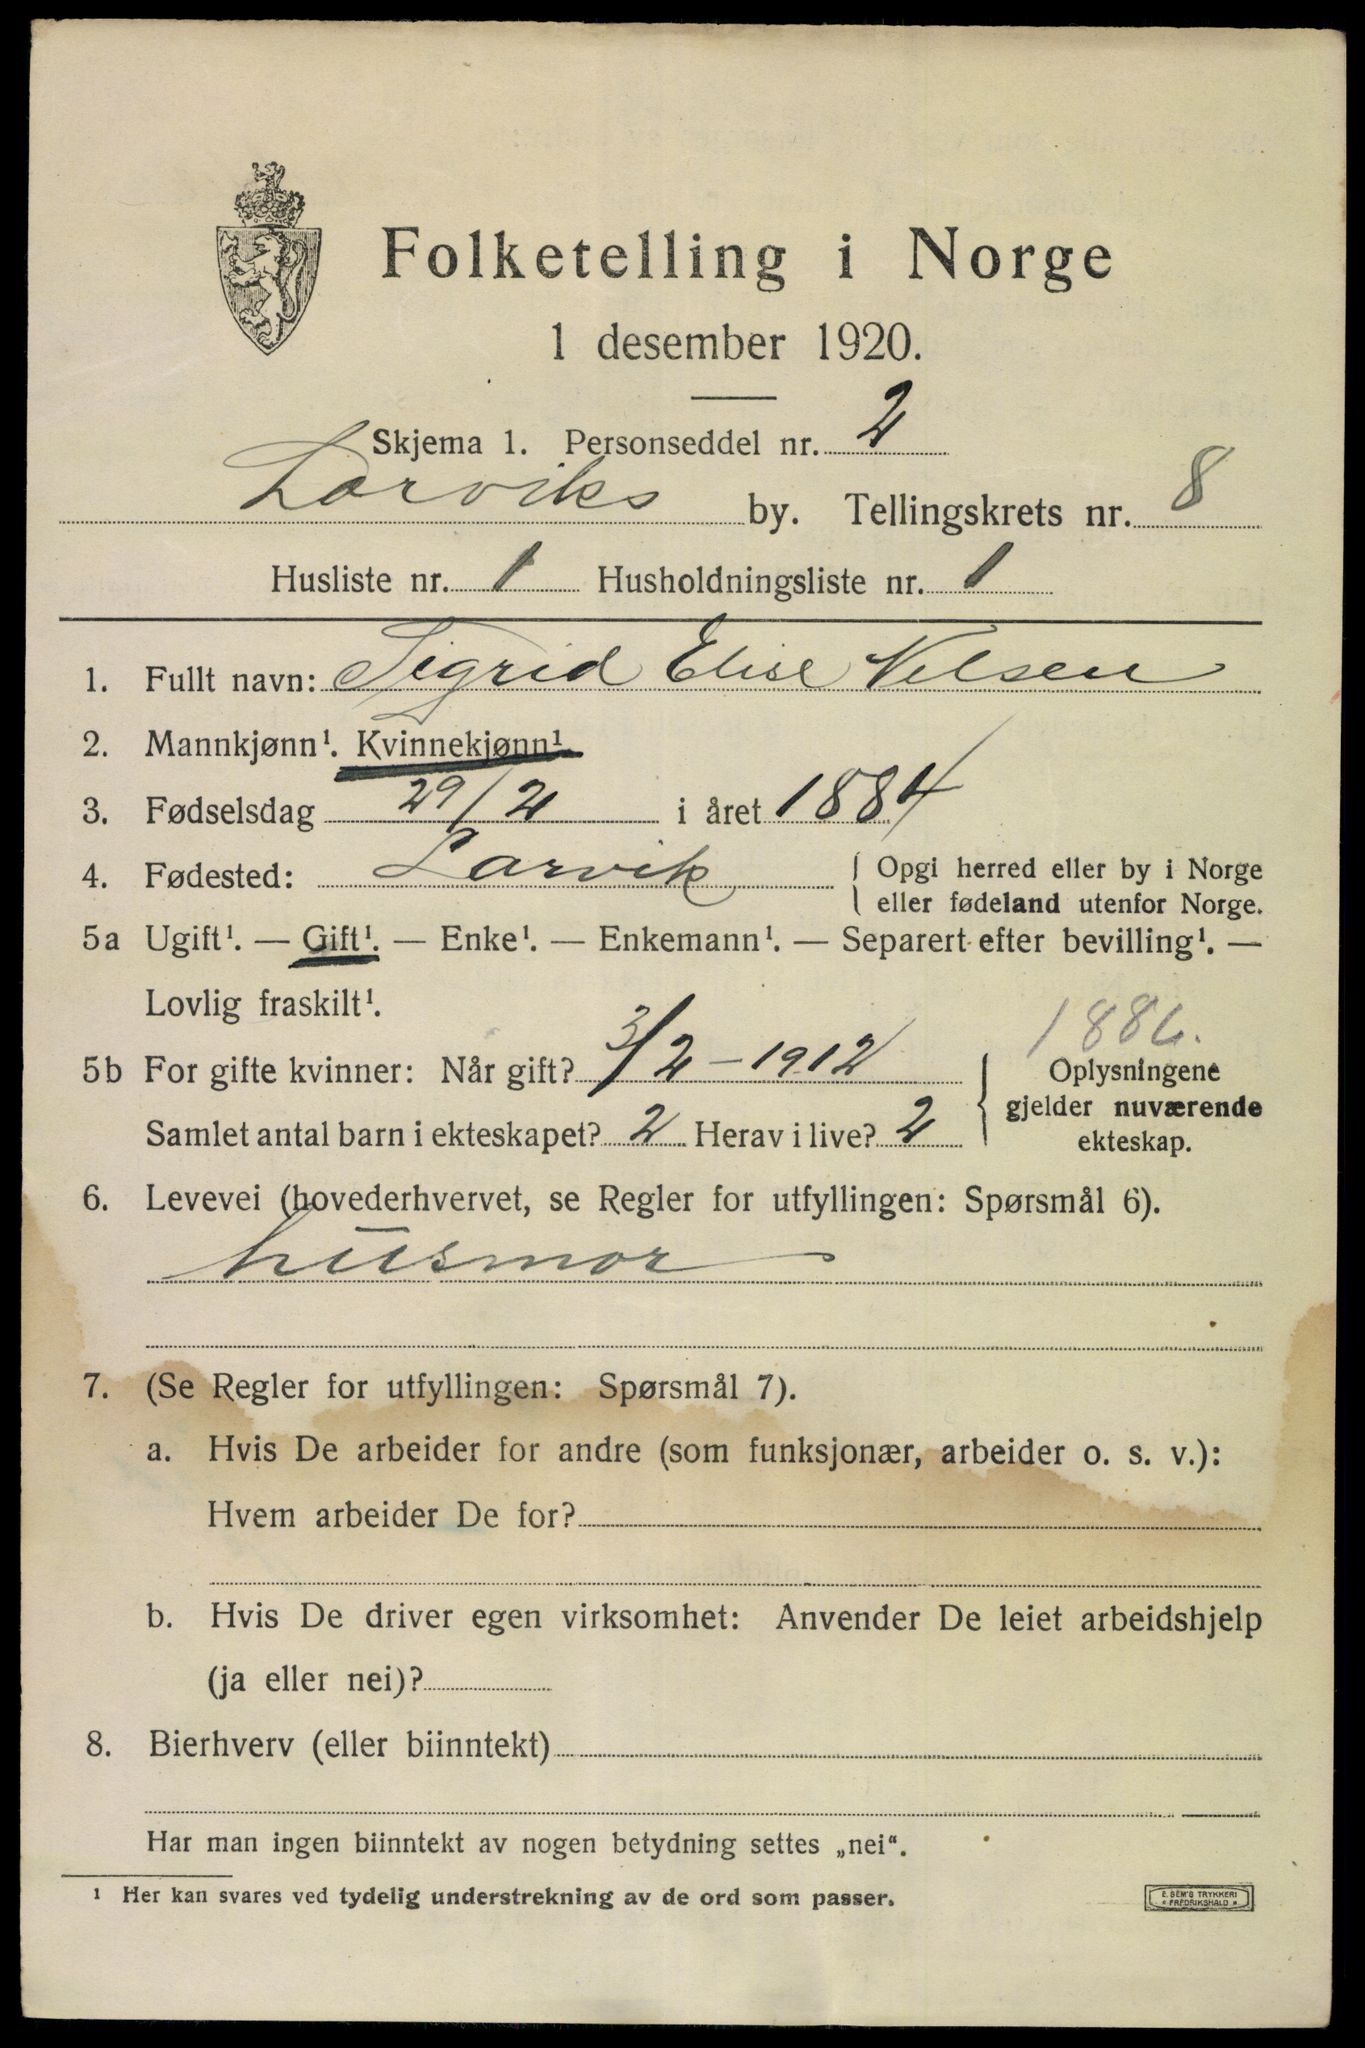 Folketelling i Norge
1 desember 1920.
Skjema 1. Personseddel nr. 2
Larviks by. Tellingskrets nr. 8
Husliste nr. 1 Husholdningsliste nr. 1
1. Fullt navn: Sigrid Elise Nilsen
2. Mannkjønn¹. Kvinnekjønn¹.
3. Fødselsdag 29/2 i året 1884
4. Fødested: Larvik { Opgi herred eller by i Norge
eller fødeland utenfor Norge.
5a Ugift¹. — Gift¹. — Enke¹. — Enkemann¹. — Separert efter bevilling¹. —
Lovlig fraskilt¹.
1886.
5b For gifte kvinner: Når gift? 3/2 – 1912
Samlet antal barn i ekteskapet? 2 Herav i live? 2
Oplysningene
gjelder nuværende
ekteskap.
6. Levevei (hovederhvervet, se Regler for utfyllingen: Spørsmål 6).
husmor
7. (Se Regler for utfyllingen: Spørsmål 7).
a. Hvis De arbeider for andre (som funksjonær, arbeider o. s. v.):
Hvem arbeider De for?
b. Hvis De driver egen virksomhet: Anvender De leiet arbeidshjelp
(ja eller nei)?
8. Bierhverv (eller biinntekt)
Har man ingen biinntekt av nogen betydning settes „nei“.
¹ Her kan svares ved tydelig understrekning av de ord som passer.
E. SEM'S TRYKKERI
* FREDRIKSHALD *